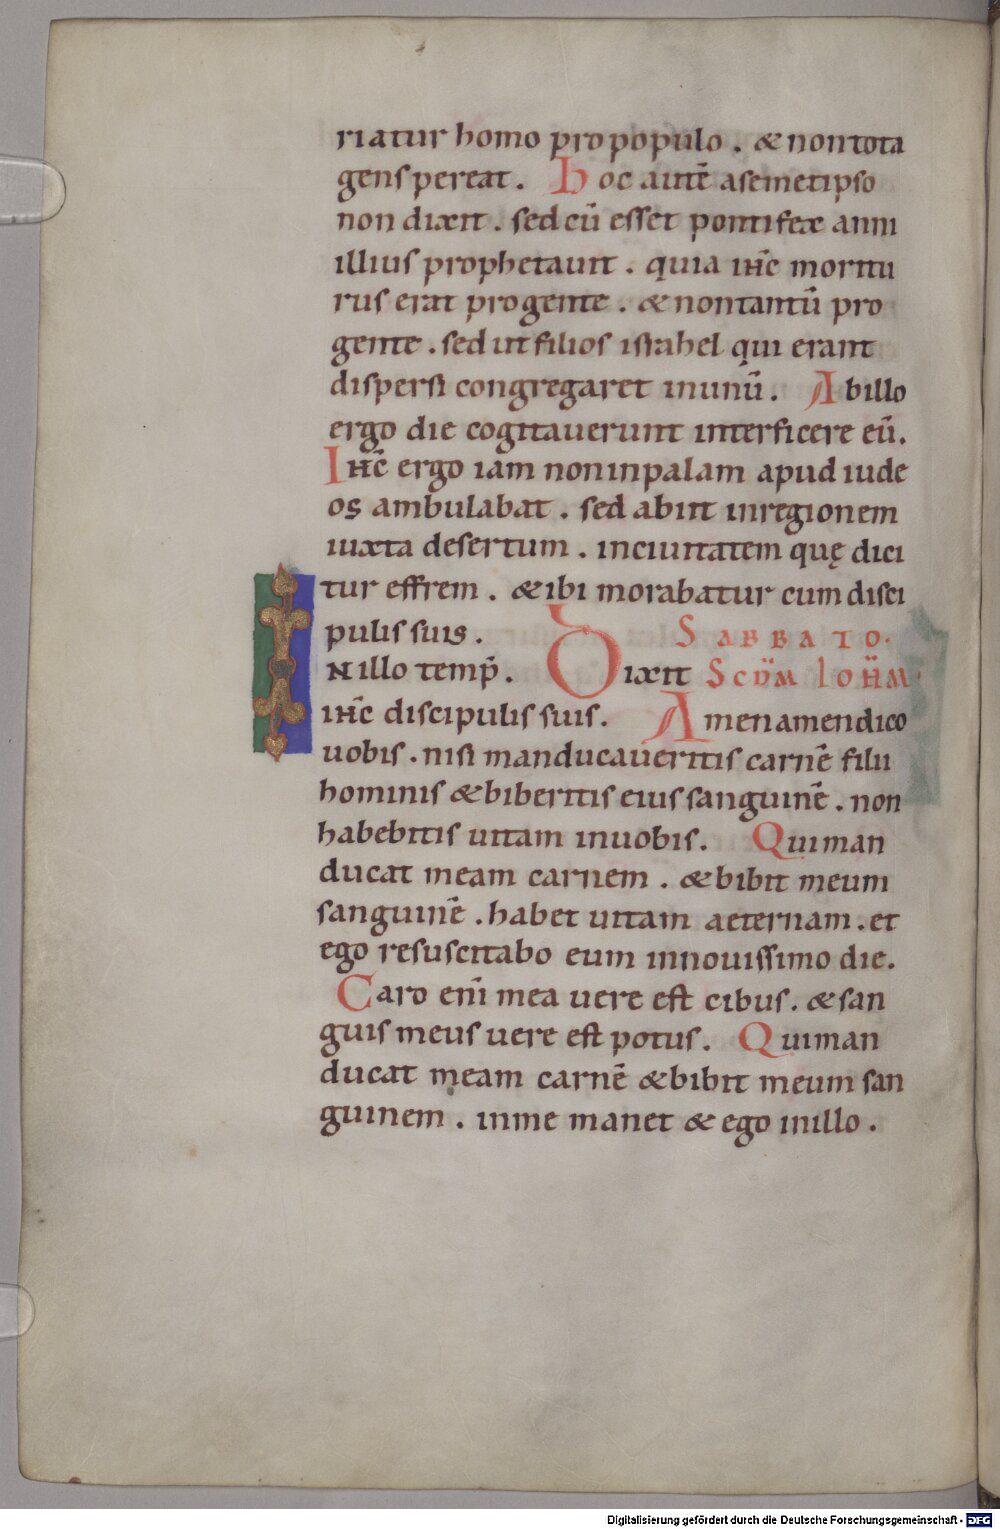 riatur homo pro populo . & non tota
gens pereat . Hoc autē a semetipso
non dixit . sed cū esset pontifex anni
illius prophetauit . quia ihc̄ moritu
rus erat pro gente . & non tantū pro
gente . sed ut filios israhel qui erant
dispersi congregaret in unū . Ab illo
ergo die cogitauerunt interficere eū .
Ihc̄ ergo iam non in palam apud iude
os ambulabat . sed abiit in regionem
iuxta desertum . in ciuitatem quę dici
tur effrem . & ibi morabatur cum disci
pulis suis . SABBATO .
IN illo temp̄ . Dixit Scd̄m Ioh̄m
ihc̄ discipulis suis . Amen amen dico
uobis . nisi manducaueritis carnē filii
hominis & biberitis eius sanguinē . non
habebitis uitam in uobis . Qui man
ducat meam carnem . & bibit meum
sanguinē . habet uitam aeternam . et
ego resuscitabo eum in nouissimo die .
Caro enī mea uere est cibus . & san
guis meus uere est potus . Qui man
ducat meam carnē & bibit meum san
guinem . in me manet & ego in illo .
Digitalisierung gefördert durch die Deutsche Forschungsgemeinschaft - DFG